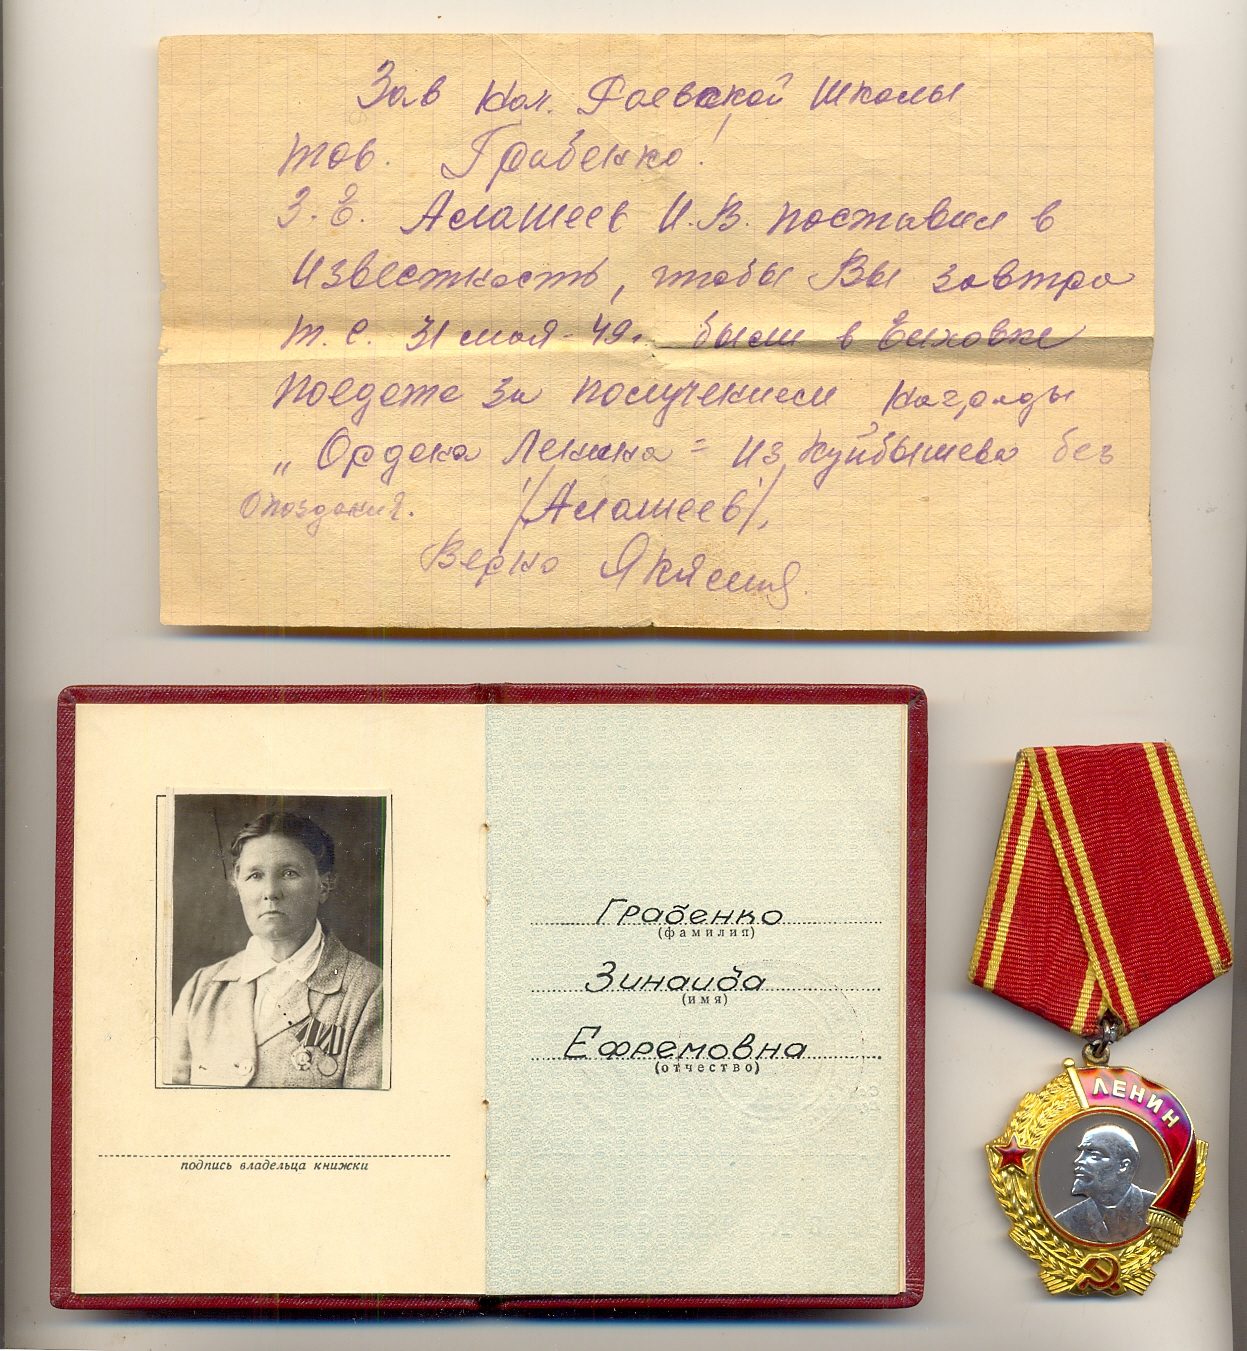 Зав Нач. Раевской школы
тов. Грабенко!
З.Е. Алашеев И.В. поставил в
известность, чтобы Вы завтра
т.е. 31 мая-49г. были в Елховке
поедете за получением награды
„Ордена Ленина" из Куйбышева без
опоздания. /Алашеев/.
Верно
Грабенко
(фамилия)
Зинаида
(имя)
Ефремовна
(отчество)
подпись владельца книжки
ЛЕНИН